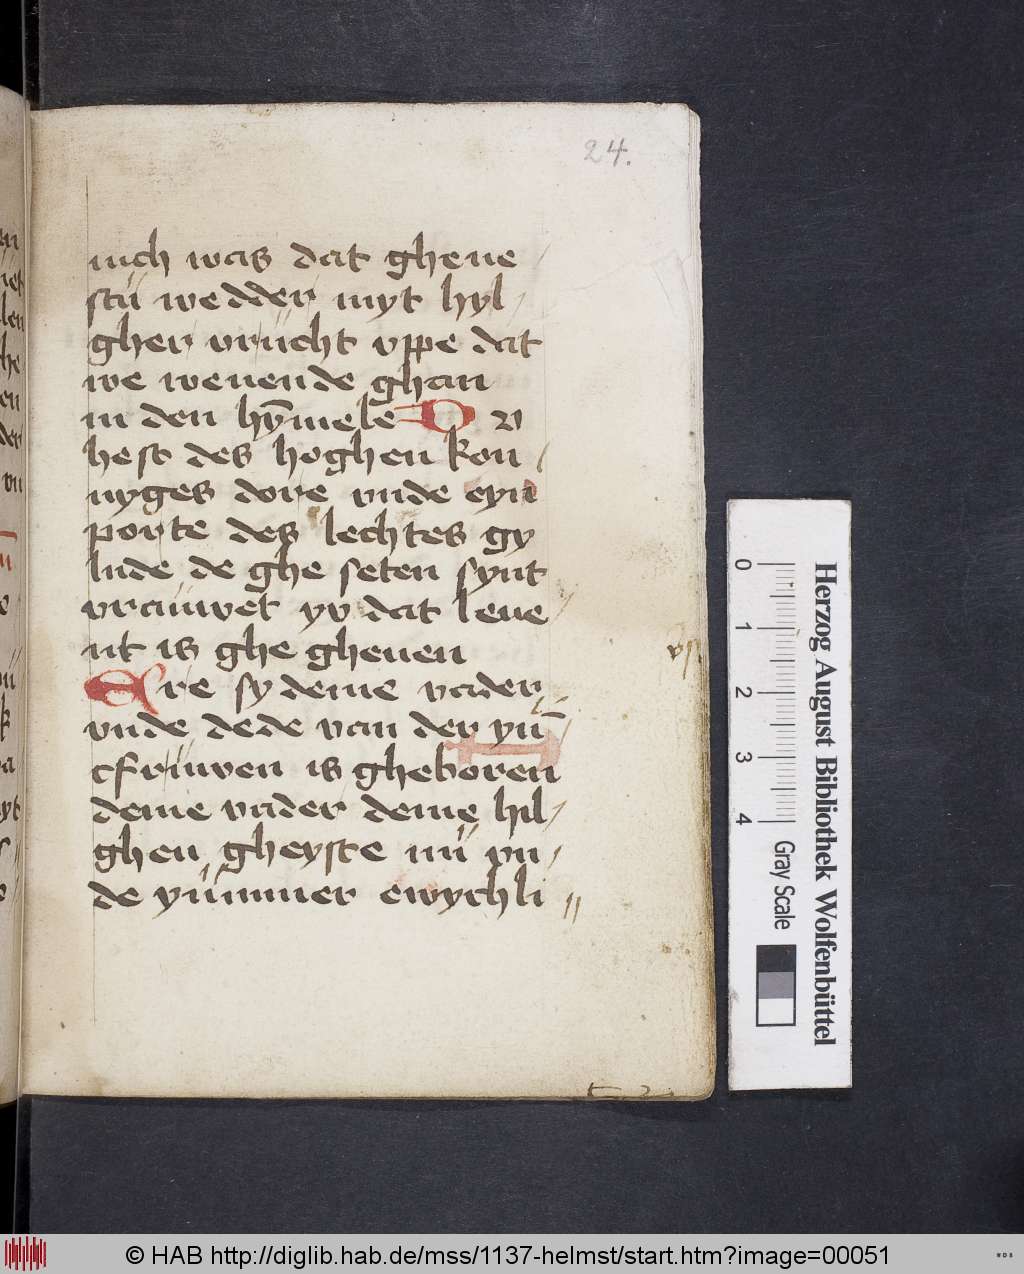 24.
nich was dat gheue
stu wedder myt hyl
gher vrucht vppe dat
we wenende ghan
in den hȳmele Du
best des hoghen kon
nyges dore vnde eyn
porte des lechtes gy
lude de ghe seten synt
vrauwet yv dat leue
nt is ghe gheuen
Ere sy deme vader
vnde dede van der yū
cfruwen is gheboren
deme vader deme hil
ghen gheyste nu vn
de yummer ewychli
Herzog August Bibliothek Wolfenbüttel
0 1 2 3 4
Gray Scale
© HAB http://diglib.hab.de/mss/1137-helmst/start.htm?image=00051